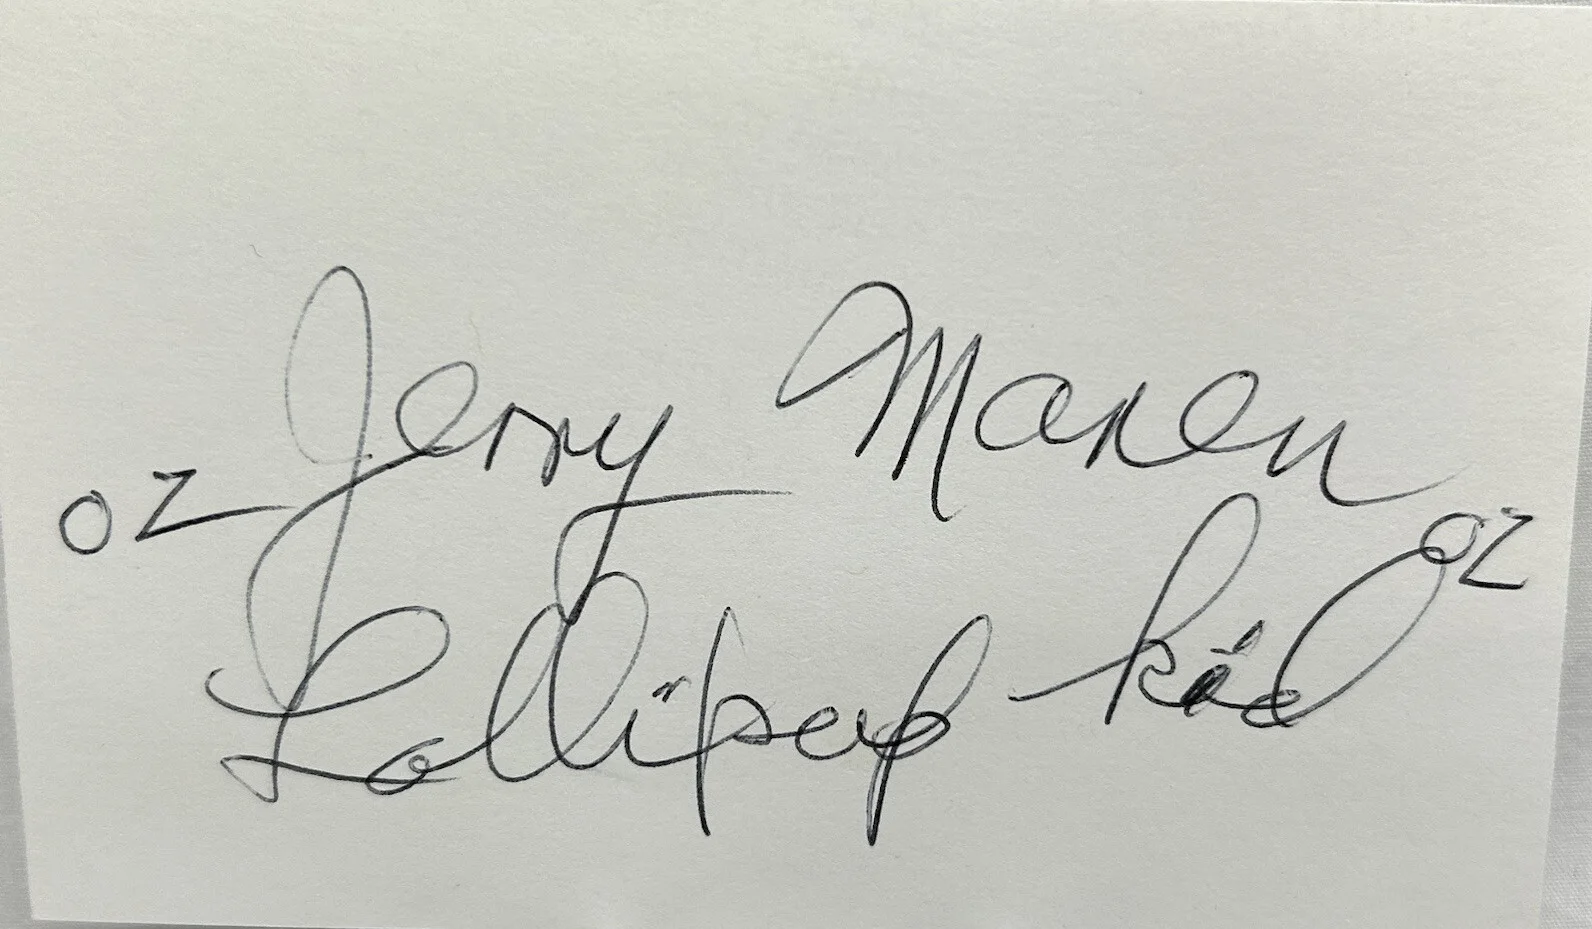 Jerry Maren
OZ OZ
Lollipop kid